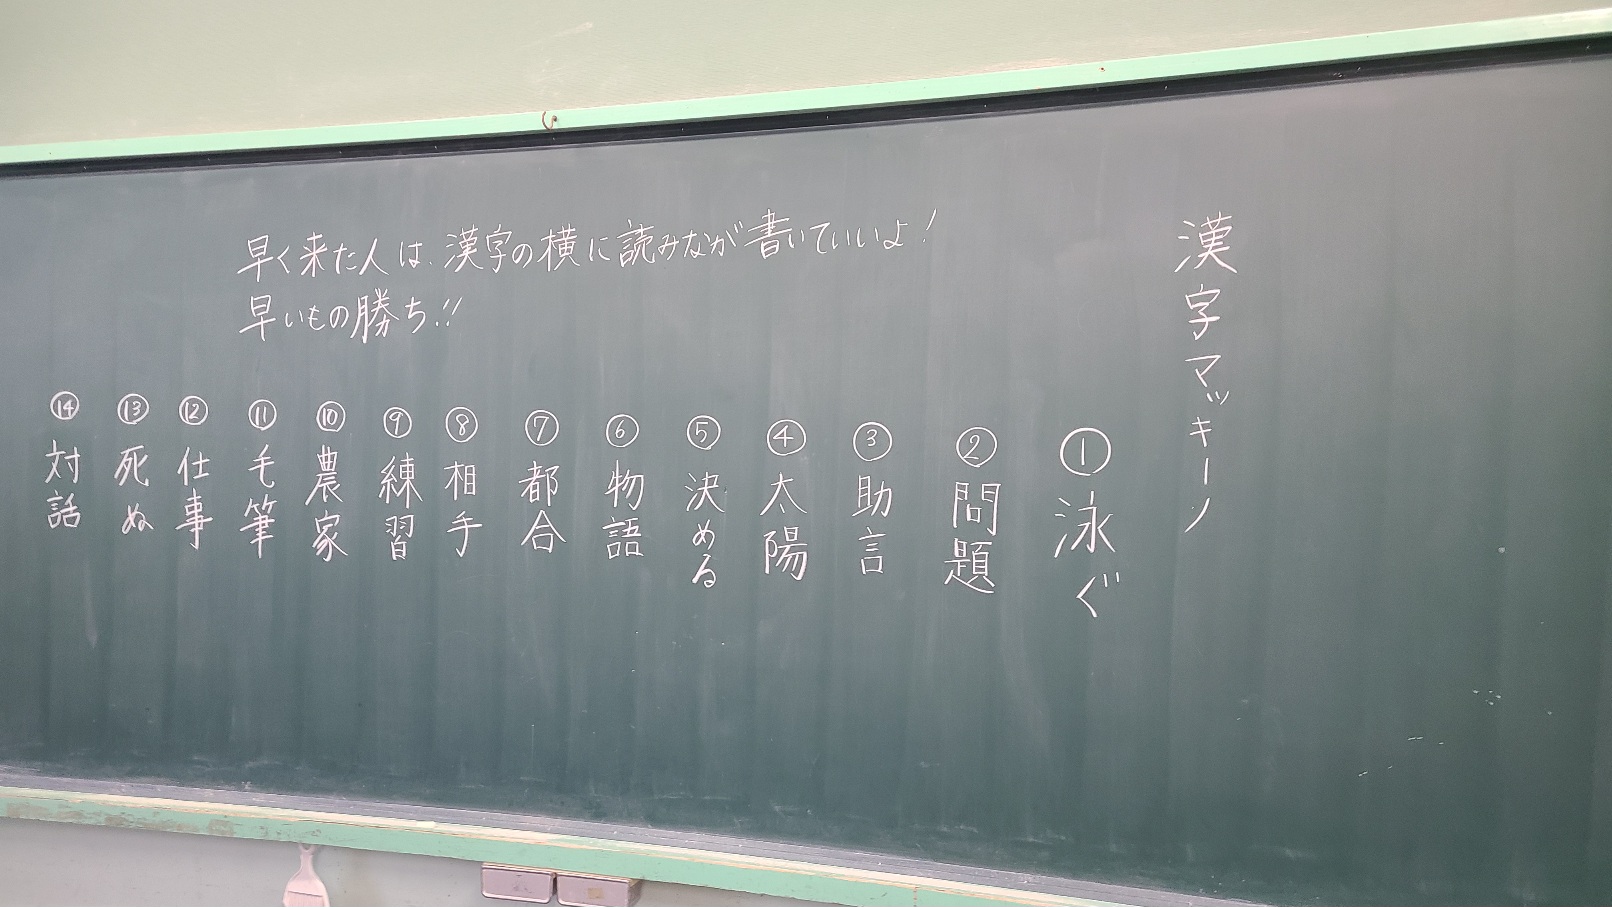 漢字マッキーノ
早く来た人は、漢字の横に読みなが書いていいよ!
早いもの勝ち!!
①泳ぐ
②問題
③助言
④太陽
⑤決める
⑥物語
⑦都合
⑧相手
⑨練習
⑩農家
⑪毛筆
⑫仕事
⑬死ぬ
⑭対話